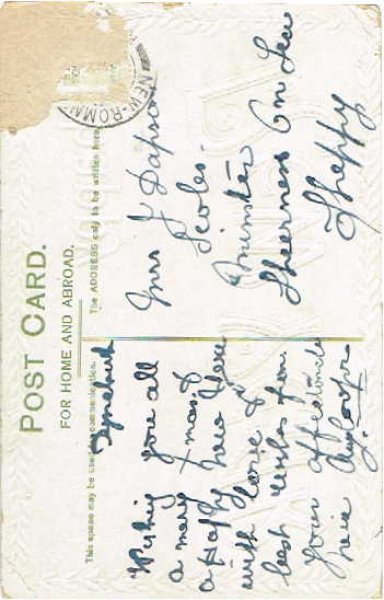 POST CARD.
FOR HOME AND ABROAD.
This space may be used for communication.
The ADDRESS only to be written here.
NEW-ROMN
Wishing you all
a merry Xmas &
a Happy New Year
with love &
best wishes from
your affectionate
Mrs J Dapson
Scoles
Minster
Sheerness On Sea
Sheppy